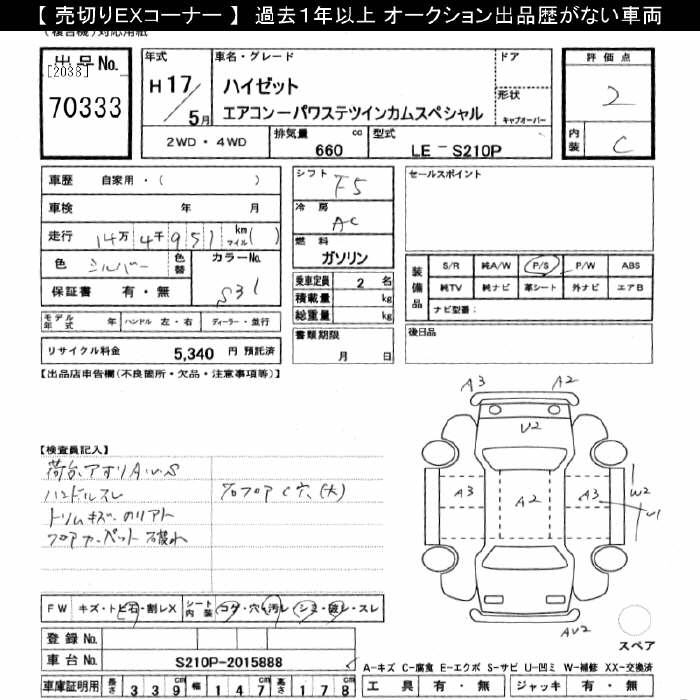 【 売切りEXコーナー 】 過去１年以上 オークション出品歴がない車両
出品No.
[2038]
70333
年式
H17/5月
車名・グレード
ハイゼット
エアコンーパワステツインカムスペシャル
ドア
形状
キャブオーバー
2WD・4WD
排気量 660 cc
型式 LE－S210P
評価点
2
内装 C
車歴 自家用・( )
車検 年 月
走行 14万4千951 km マイル( )
色 シルバー 色替
カラーNo. S31
保証書 有・無
モデル年式 年 ハンドル 左・右 ディーラー・並行
リサイクル料金 5,340 円 預託済
シフト F5
冷房 AC
燃料 ガソリン
乗車定員 2 名
積載量 kg
総重量 kg
書類期限
月 日
セールスポイント
装備品
S/R 純A/W P/S P/W ABS
純TV 純ナビ 革シート 外ナビ エアB
ナビ型番：
後日品
【出品店申告欄(不良箇所・欠品・注意事項等)】
【検査員記入】
荷台、アオリA・U・S
ハンドルスレ
トリムキズ・のりアト
フロアカーペット破れ
左右フロアC穴(大)
A3 A2
U2
A3 A2 A3
W2
U1
AU2
スペア
FW キズ・トビ石・割レX シート内装 コゲ・穴・汚レ・シミ・破レ・スレ
登録No.
車台No. S210P-2015888
A-キズ C-腐食 E-エクボ S-サビ U-凹ミ W-補修 XX-交換済
車庫証明用 長さ 339 幅 147 高さ 178
工具 有・無 ジャッキ 有・無